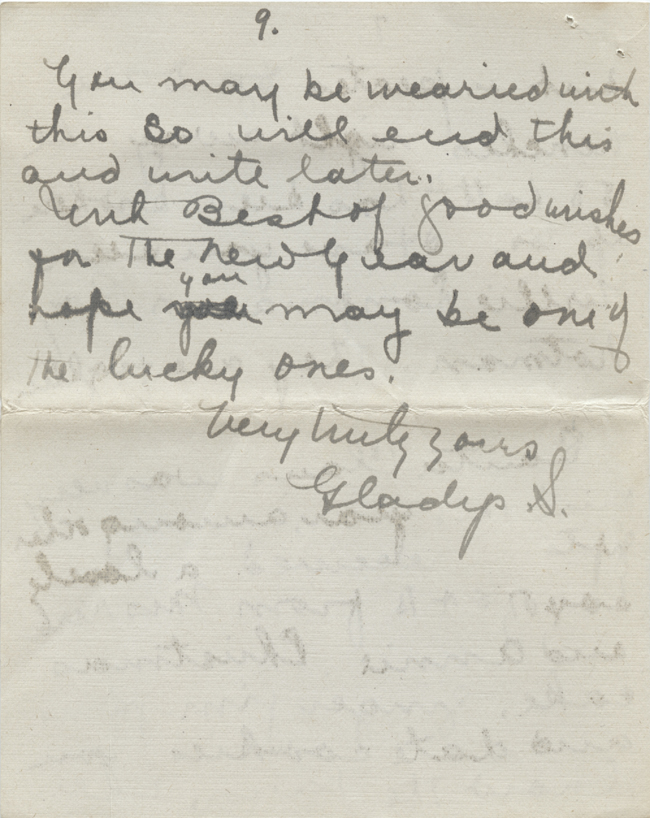 9.
You may be wearied with
this so will end this
and write later.
With Best of good wishes
for the New Year and
you
hope may be one of
the lucky ones.
Very truly yours
Gladys S.